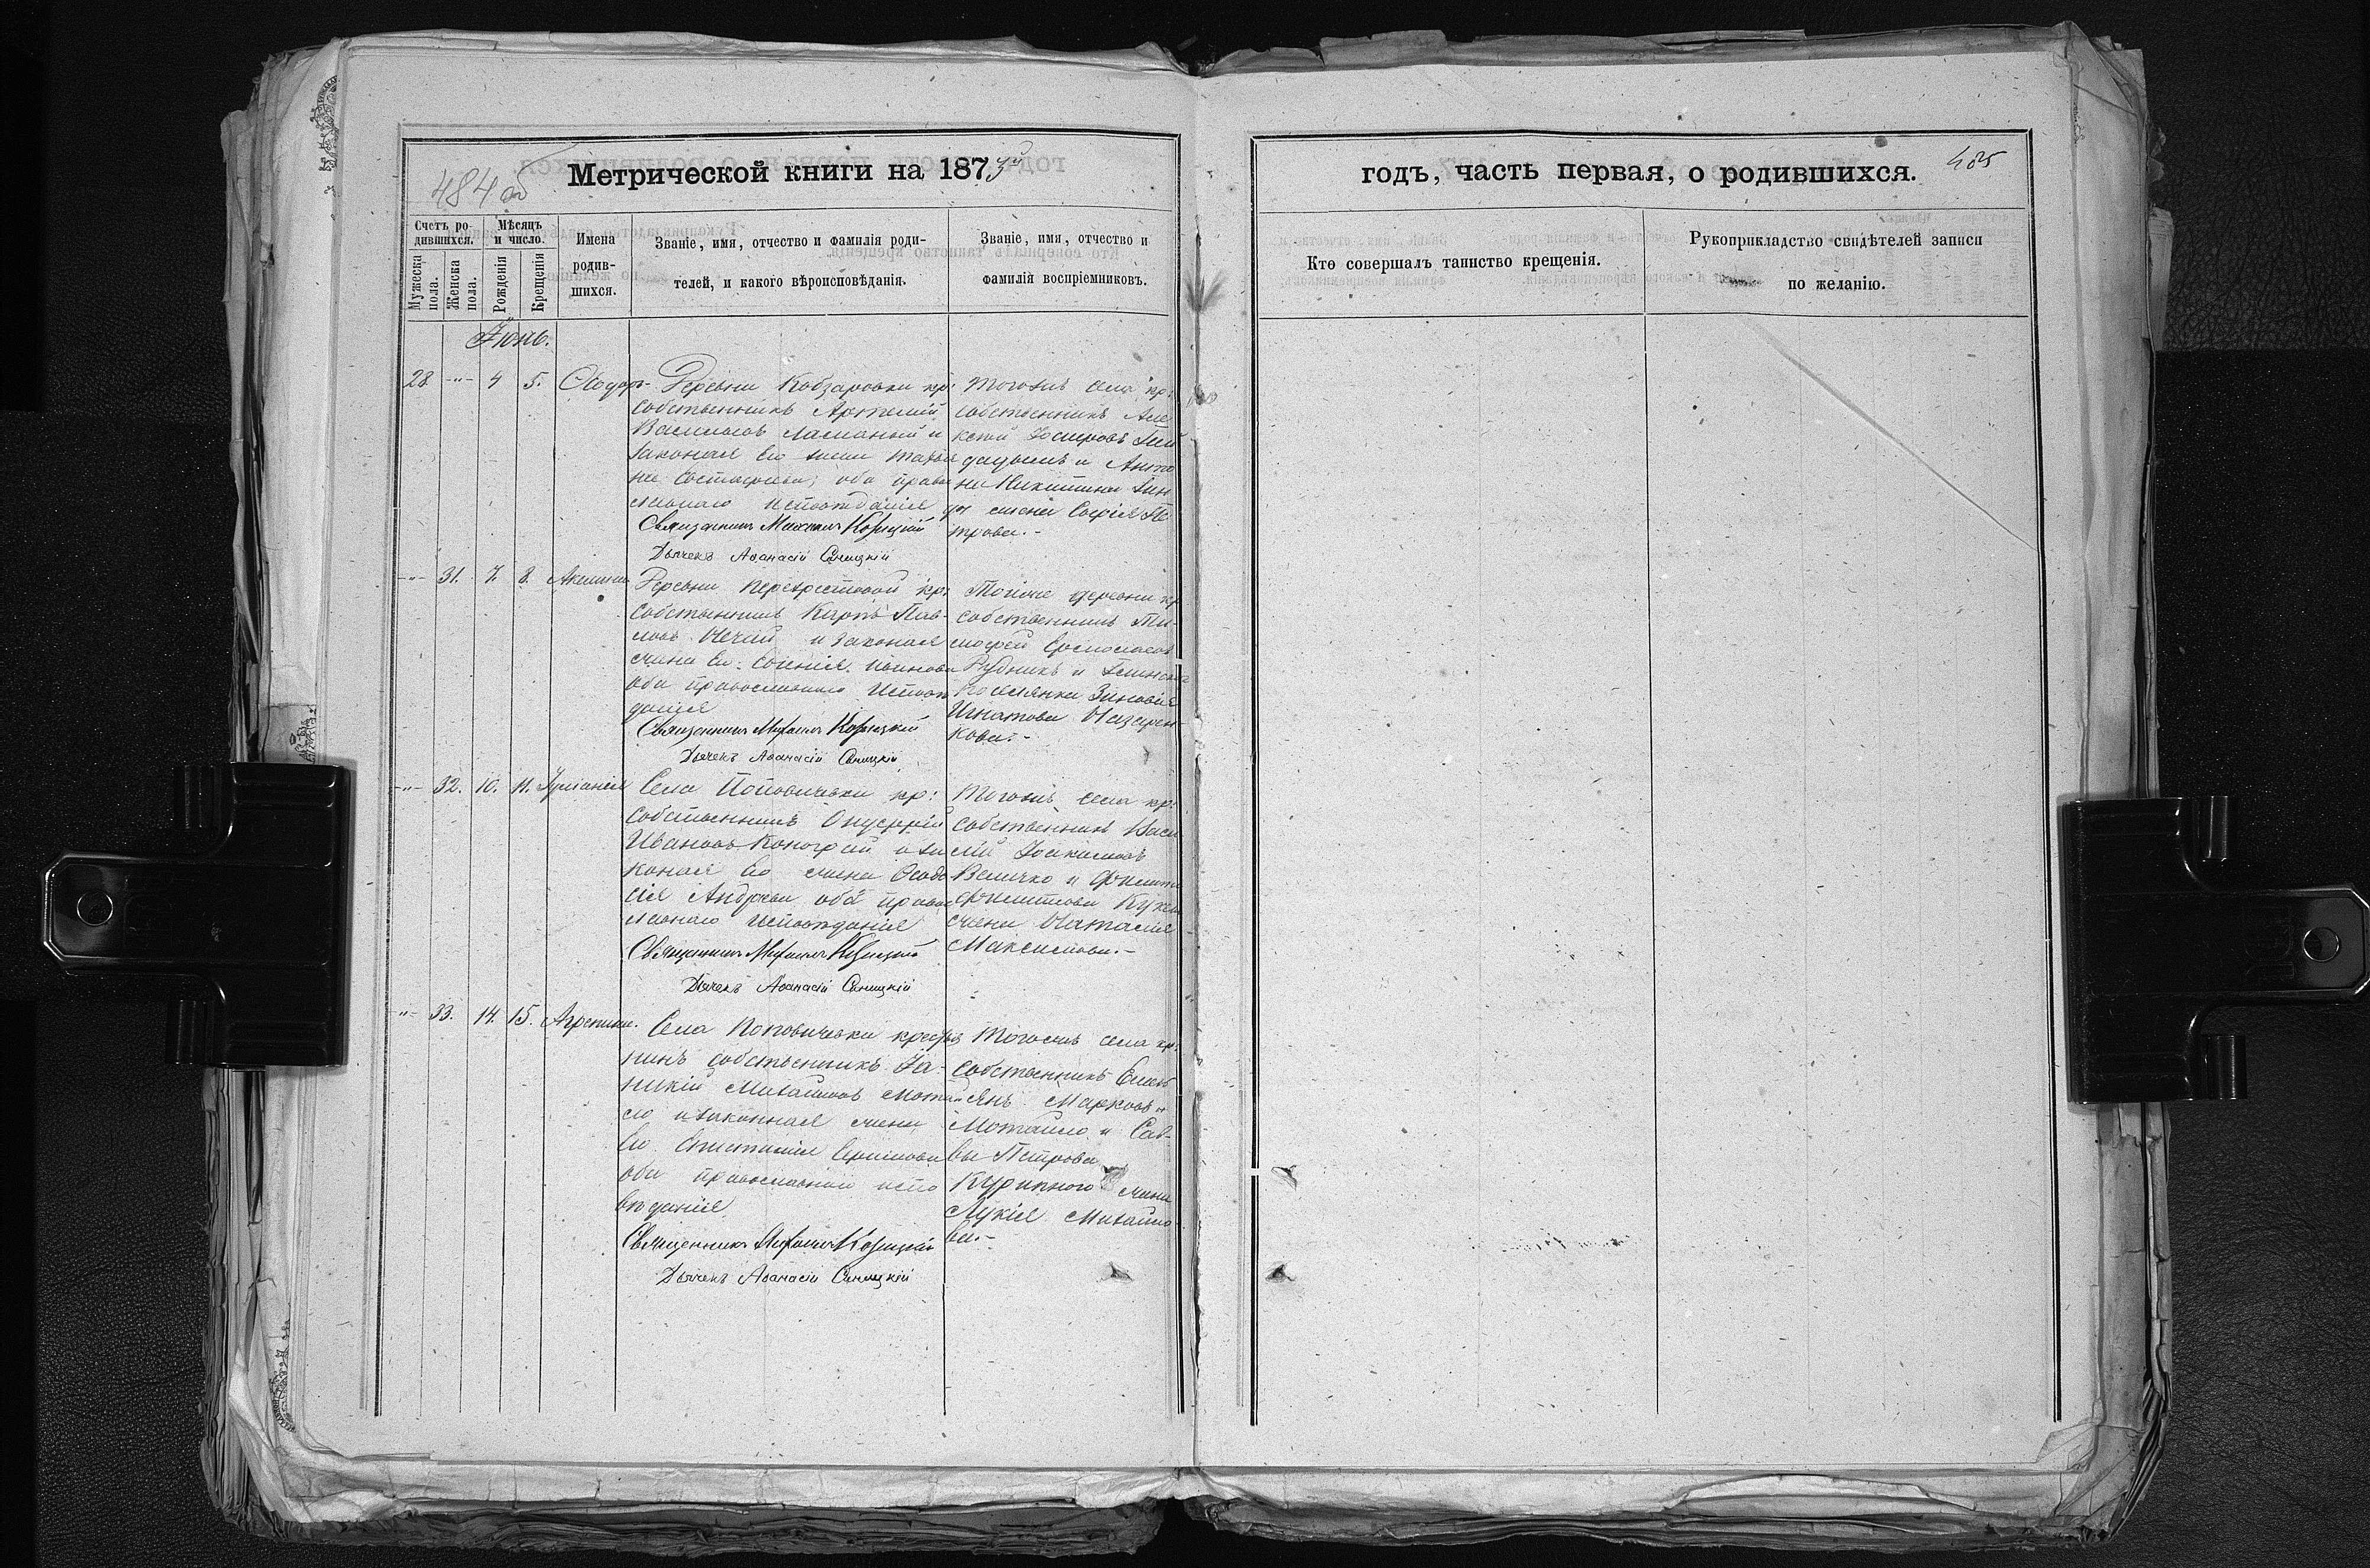 484 об
Метрической книги на 1873й
годъ, часть первая, о родившихся.
485
Счетъ ро-
дившихся.
Мужеска
пола.
Женска
пола.
Мѣсяцъ
и число.
Рожденія
Крещенія
Имена
родив-
шихся.
Званіе, имя, отчество и фамилія роди-
телей, и какого вѣроисповѣданія.
Званіе, имя, отчество и
фамилія воспріемниковъ.
Кто совершалъ таинство крещенія.
Рукоприкладство свидѣтелей записи
по желанію.
Іюнь.
28 -"- 4 5.
Деревни Кобзаровки кр:
собственникъ Артемій
Васильевъ и
законная его жена Татья
на оба право
славнаго исповѣданія
Священникъ Михаилъ Козицкій
Дьячекъ Аѳанасій Синицкій
Тогожъ села кр:
собственникъ Але
ксѣй
и Анто
на Никитина
жена Софія Пе
трова.-
-"- 31. 7. 8. Акилина
Деревни кр:
собственникъ Карпъ Пав-
ловъ Нечай и законная
жена его Іоаннова
оба православнаго исповѣ
данія
Священникъ Михаилъ Козицкій
Дьячекъ Аѳанасій Синицкій
Тойже деревни кр
собственникъ Ти-
моѳей
Рудникъ и
Зиновія
Игнатова Назарен-
кова.-
-"- 32. 10. 11. Іуліанія
Села Поповички кр:
собственникъ Онуфрій
Ивановъ и за
конная его жена Ѳеодо
сія Андреева оба право
славнаго исповѣданія
Священникъ Михаилъ Козицкій
Дьячекъ Аѳанасій Синицкій
Тогожъ села кр:
собственникъ Васи
лій Іоакимовъ
Величко и Филиппа
Филиппова
жена Наталія
Максимова.-
-"- 33. 14. 15. Агрепина.
Села Поповички крестья
нинъ собственникъ Іа-
никій Михайловъ Мотай
ло и законная жена
его
оба православнаго испо
вѣданія
Священникъ Михаилъ Козицкій
Дьячекъ Аѳанасій Синицкій
Тогожъ села кр:
собственникъ Емель
янъ Марковъ
Мотайло и Сав-
вы Петрова
Курипного жена
Лукія Михайло-
ва.-